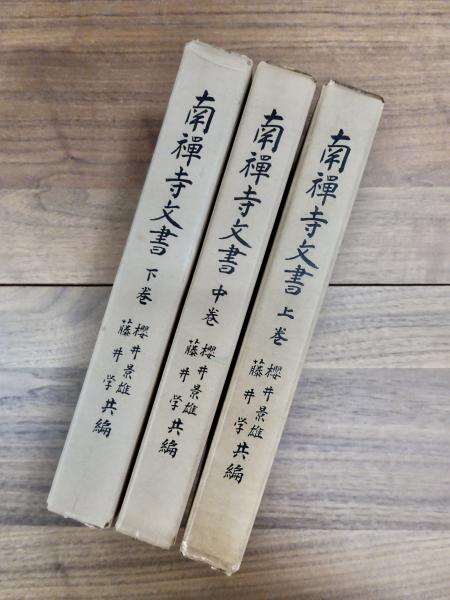 南禪寺文書 上巻
櫻井景雄
藤井学 共編
南禪寺文書 中巻
櫻井景雄
藤井学 共編
南禪寺文書 下巻
櫻井景雄
藤井学 共編